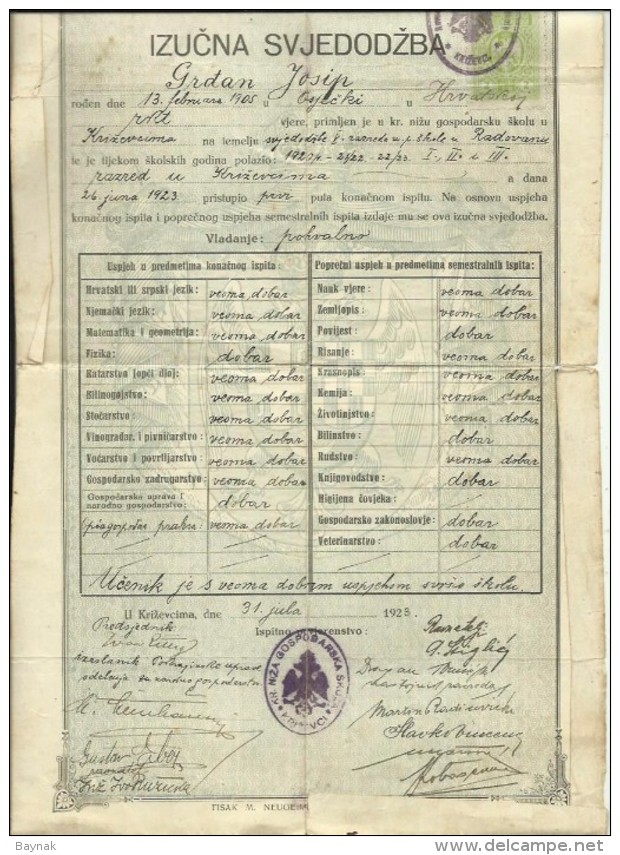 IZUČNA SVJEDODŽBA
KRIŽEVCI
Grđan Josip
rođen dne 13. februara 1905 u Osječki u Hrvatskoj
rkt vjere, primljen je u kr. nižu gospodarsku školu u
Križevcima na temelju svjedodžbe razreda u. p. škole u Radovanu
te je tijekom školskih godina polazio: 1920/1 - 21/22. - 22/23. I., II. i III.
razred u Križevcima a dana
26. juna 1923. pristupio prvi puta konačnom ispitu. Na osnovu uspjeha
konačnog ispita i poprečnog uspjeha semestralnih ispita izdaje mu se ova izučna svjedodžba.
Vladanje: pohvalno
Uspjeh u predmetima konačnog ispita:
Hrvatski ili srpski jezik: veoma dobar
Njemački jezik: veoma dobar
Matematika i geometrija: veoma dobar
Fizika: dobar
Ratarstvo (opći dio): veoma dobar
Bilinogojstvo: veoma dobar
Stočarstvo: veoma dobar
Vinogradar. i pivničarstvo: veoma dobar
Voćarstvo i povrtljarstvo: veoma dobar
Gospodarsko zadrugarstvo: veoma dobar
Gospodarska uprava i
narodno gospodarstvo: dobar
praksa: veoma dobar
Poprečni uspjeh u predmetima semestralnih ispita:
Nauk vjere: veoma dobar
Zemljopis: veoma dobar
Povijest: dobar
Risanje: veoma dobar
Krasnopis: veoma dobar
Kemija: veoma dobar
Životinjstvo: veoma dobar
Bilinstvo: dobar
Rudstvo: veoma dobar
Knjigovodstvo: dobar
Higijena čovjeka:
Gospodarsko zakonoslovje: dobar
Veterinarstvo: dobar
Učenik je s veoma dobrim uspjehom svršio školu.
U Križevcima, dne 31. jula 1923.
Predsjednik: Ispitno povjerenstvo:
Ivan
izaslanik Pokrajinske uprave
odelenja za narodno gospodarstvo
KR. NIŽA GOSPODARSKA ŠKOLA
Martin
Slavko
Gustav
TISAK M. NEUGEBA
Baynak
delcampe.net